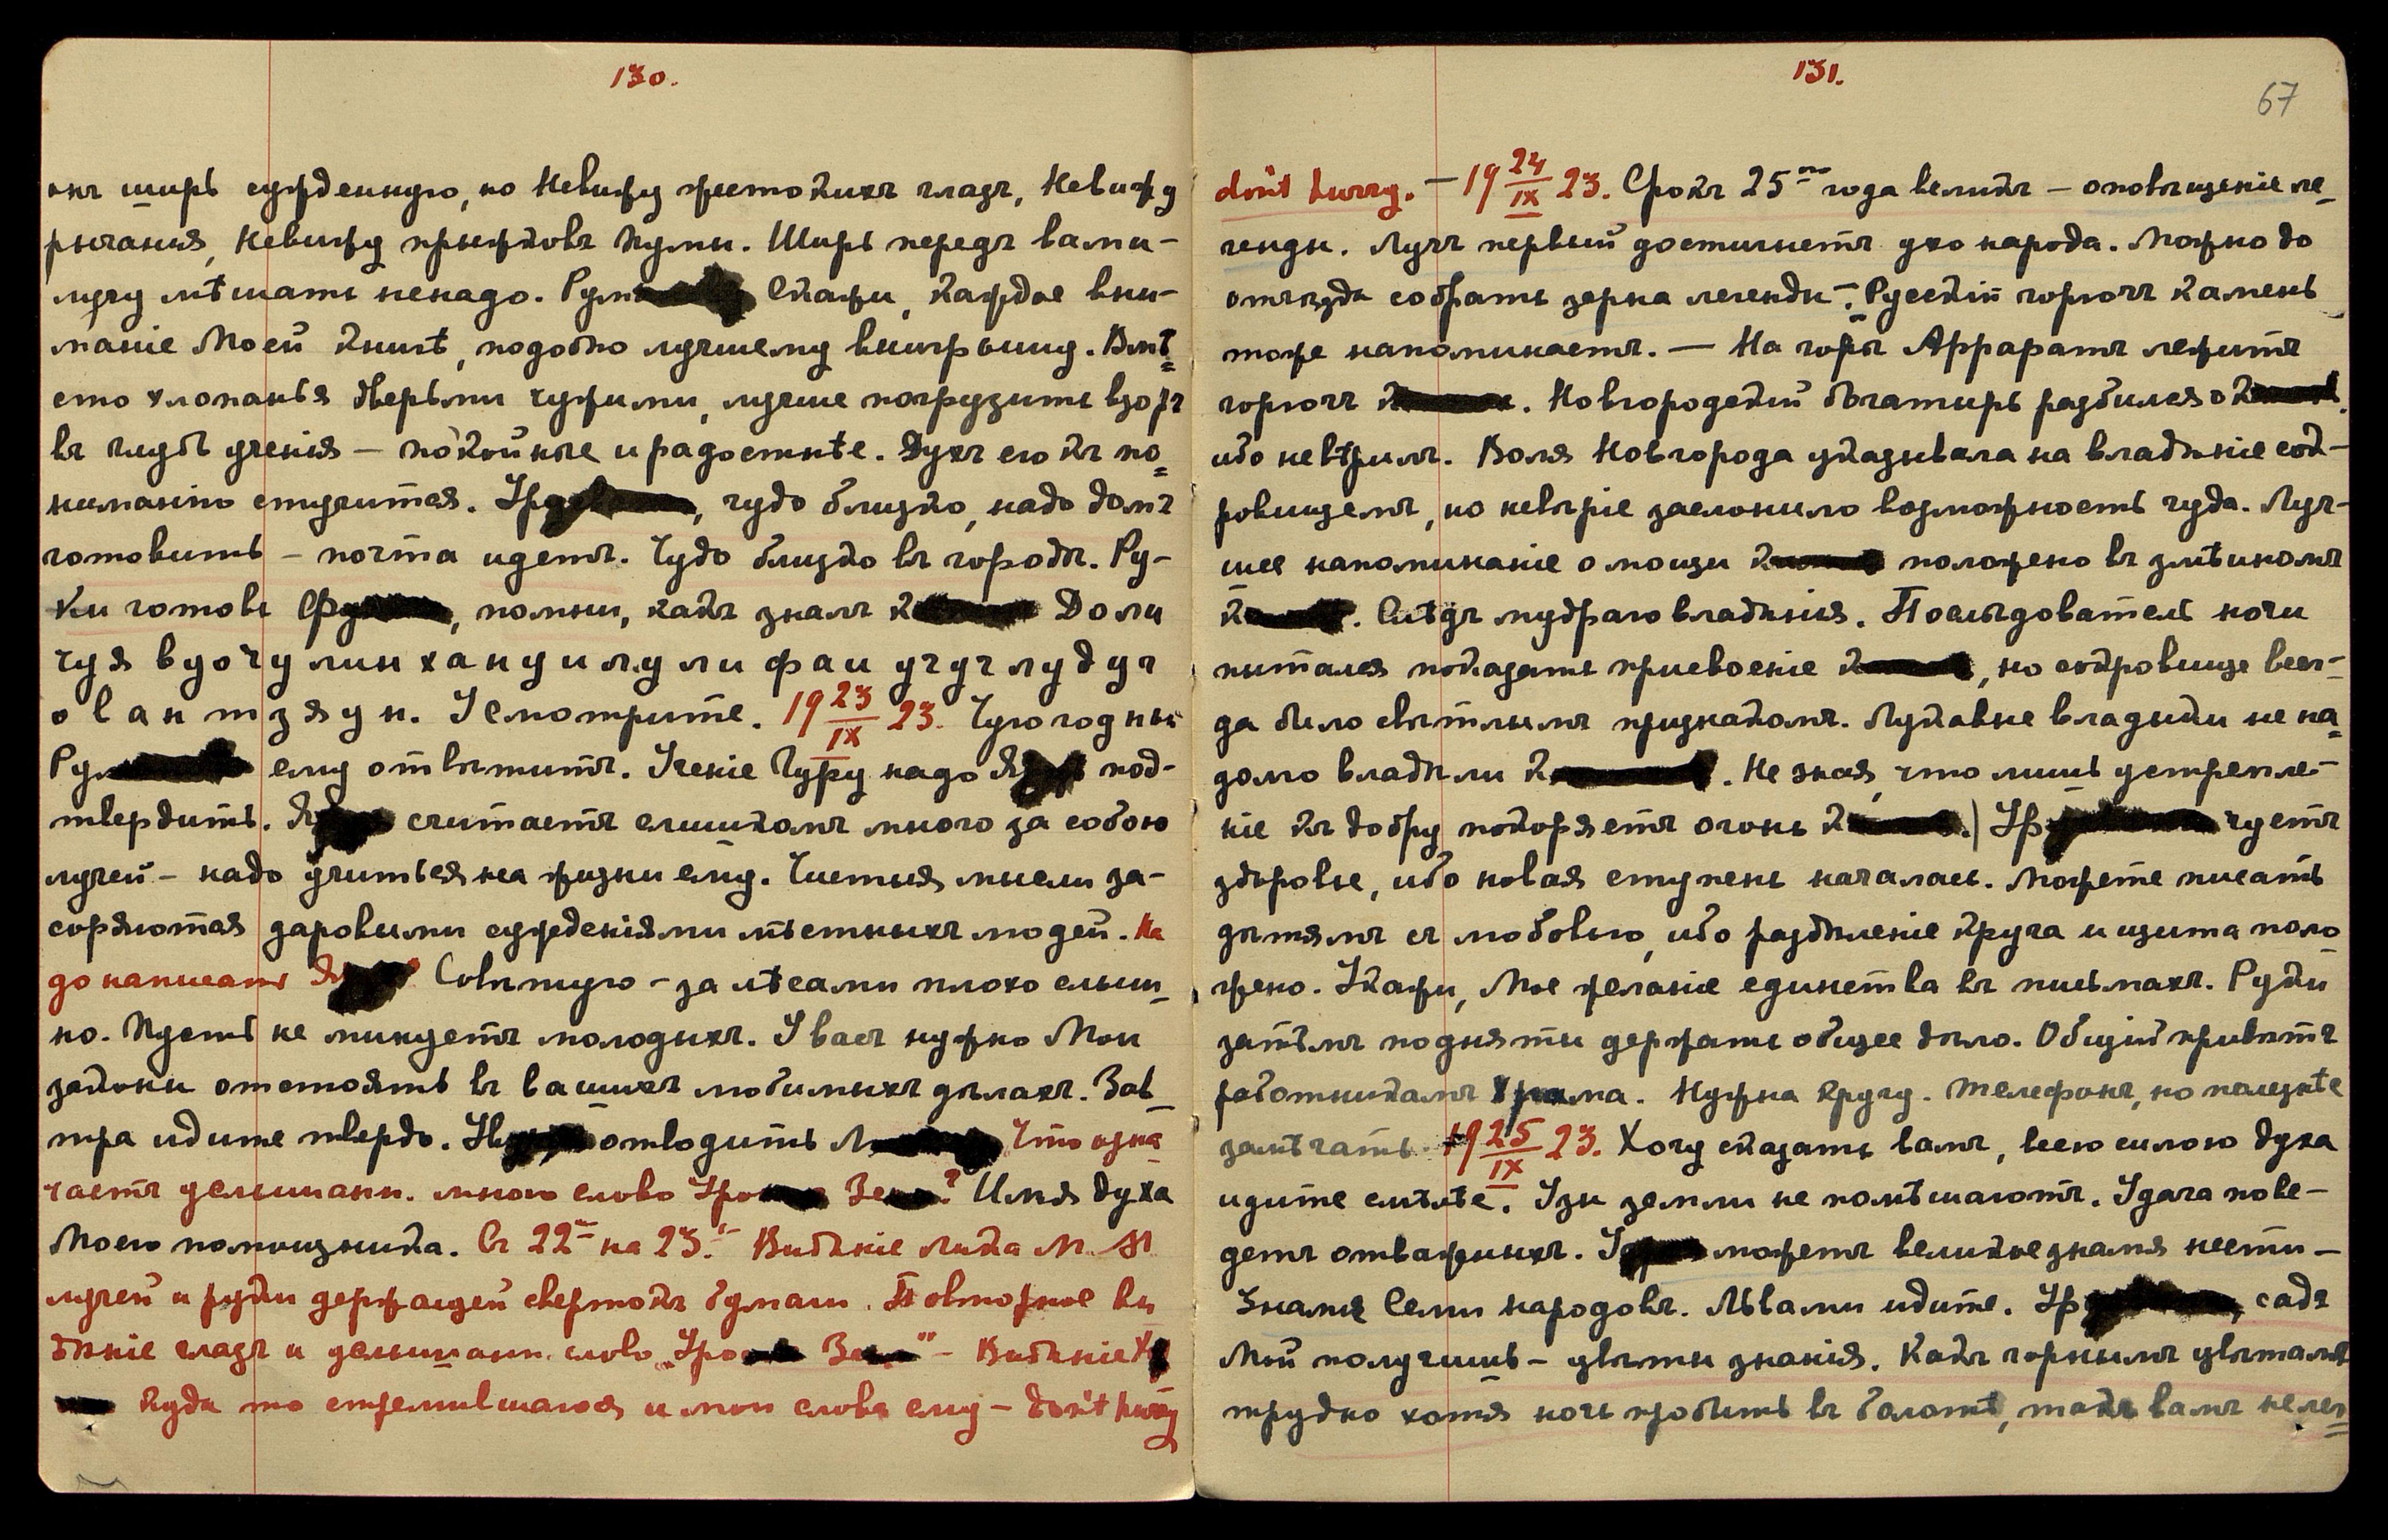 130.
онъ ширь сужденную, но невижу жестокихъ глазъ, невижу
рычанія, невижу прыжковъ пумы. Ширь передъ вами –
лучу мѣшать ненадо. Скажи, каждое вни-
маніе Моей книгѣ, подобно лучшему выигрышу. Вмѣ
сто хлопанья дверьми чужими, лучше погрузить взоръ
въ глубь ученія – покойнѣе и радостнѣе. Духъ его къ по
ниманію стучится. чудо близко, надо домъ
готовить – почта идетъ. Чудо близко въ городѣ. Ру-
ки готовь помни, какъ зналъ Доли
чуя вуочу линхануи лули фаи учучлудуч
о в а н т з я у н. Усмотрите. 19 23/IX 23. Чую годны
ему отвѣтитъ. Ученіе Гуру надо под-
твердить. считаетъ слишкомъ много за собою
лучей – надо учиться на жизни ему. Чистыя мысли за-
соряются даровыми сужденіями мѣстныхъ людей. На
до написать Совѣтую – за лѣсами плохо слыш
но. Пусть не минуетъ молодыхъ. У васъ нужно Мои
законы отстоять въ вашихъ любимыхъ дѣлахъ. Зав
тра идите твердо. отводить Что озна
чаетъ услышанн. мною слово Имя духа
Моего помощника. Съ 22го на 23.е Видѣніе Лика М. М
лучей и руки держащей свертокъ бумаги. Повторное ви
дѣніе глазъ и услышанн. слово – Видѣніе
куда то стремившагося и мои слова ему – don't hurry
131.
67
don't hurry. – 19 24/IX 23. Срокъ 25го года великъ – оповѣщеніе ле
генды. Лучъ первый достигнетъ ухо народа. Можно до
отъѣзда собрать зерна легенды –. Русскій горючъ камень
тоже напоминаетъ. — На горѣ Арраратъ лежитъ
горючъ Новгородскій богатырь разбился о
ибо невѣрилъ. Воля Новгорода указывала на владѣніе сок-
ровищемъ, но невѣріе заслонило возможность чуда. Луч-
шее напоминаніе о мощи положено въ змѣиномъ
Слѣдъ мудраго владѣнія. Послѣдователь ночи
пытался показать присвоеніе но сокровище всег-
да было свѣтлымъ признакомъ. Лукавые владыки не на
долго владѣли Не зная, что лишь устремле-
ніе къ добру покоряетъ огонь чуетъ
здоровье, ибо новая ступень началась. Можете писать
дѣтямъ съ любовью, ибо раздѣленіе круга и щита поло
жено. Укажи, Мое желаніе единства въ письмахъ. Руки
затѣмъ подняты держать общее дѣло. Общій привѣтъ
работникамъ Храма. Нужна кругу. Телефонъ, но полезнѣе
замѣчать. 19 25/IX 23. Хочу сказать вамъ, всею силою духа
идите смѣлѣе. Узы земли не помѣшаютъ. Удача пове-
детъ отважныхъ. можетъ великое знамя нести –
Знамя Семи народовъ. Львами идите. садъ
Мой получишь – цвѣты знанія. Какъ горнымъ цвѣтамъ
трудно хотя ночь пробыть въ болотѣ, такъ вамъ нелег